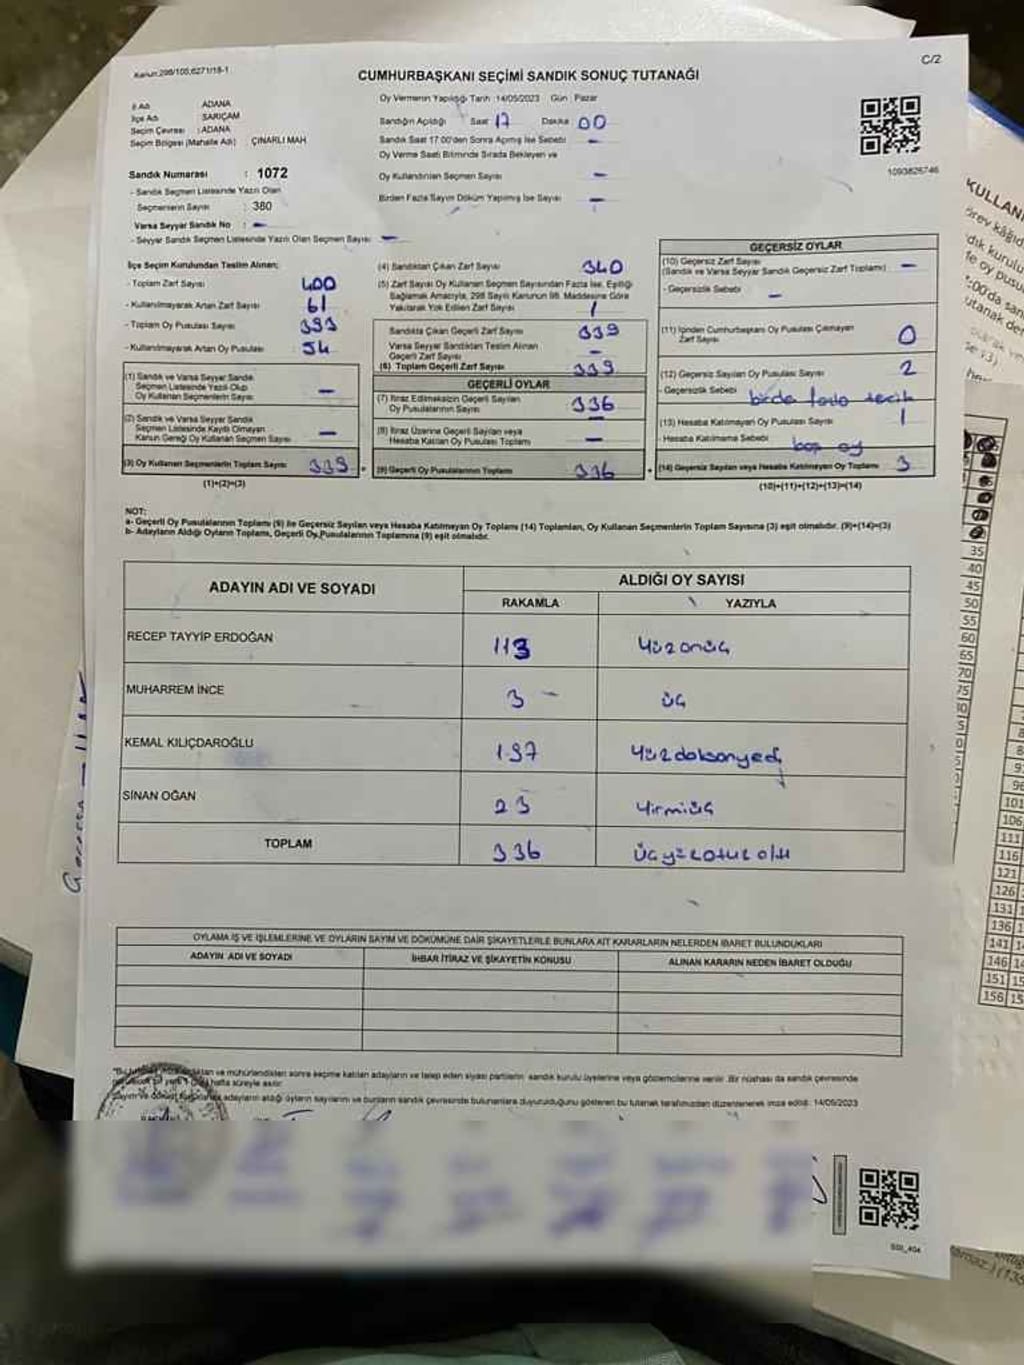 Kanun:298/100,6271/18-1
C/2
CUMHURBAŞKANI SEÇİMİ SANDIK SONUÇ TUTANAĞI
İl Adı ADANA
İlçe Adı SARIÇAM
Seçim Çevresi : ADANA
Seçim Bölgesi (Mahalle Adı) : ÇINARLI MAH
Sandık Numarası : 1072
- Sandık Seçmen Listesinde Yazılı Olan
Seçmenlerin Sayısı : 380
Varsa Seyyar Sandık No : -
- Seyyar Sandık Seçmen Listesinde Yazılı Olan Seçmen Sayısı -
Oy Vermenin Yapıldığı Tarih :14/05/2023 Gün : Pazar
Sandığın Açıldığı Saat 17 Dakika 00
Sandık Saat 17.00'den Sonra Açılmış İse Sebebi -
Oy Verme Saati Bitiminde Sırada Bekleyen ve
Oy Kullandırılan Seçmen Sayısı -
Birden Fazla Sayım Döküm Yapılmış İse Sayısı -
1093826746
İlçe Seçim Kurulundan Teslim Alınan;
- Toplam Zarf Sayısı 400
- Kullanılmayarak Artan Zarf Sayısı 61
- Toplam Oy Pusulası Sayısı 393
- Kullanılmayarak Artan Oy Pusulası 54
(1) Sandık ve Varsa Seyyar Sandık
Seçmen Listesinde Yazılı Olup
Oy Kullanan Seçmenlerin Sayısı -
(2) Sandık ve Varsa Seyyar Sandık
Seçmen Listesinde Kayıtlı Olmayan
Kanun Gereği Oy Kullanan Seçmen Sayısı -
(3) Oy Kullanan Seçmenlerin Toplam Sayısı 339
(1)+(2)=(3)
(4) Sandıktan Çıkan Zarf Sayısı 340
(5) Zarf Sayısı Oy Kullanan Seçmen Sayısından Fazla İse, Eşitliği
Sağlamak Amacıyla, 298 Sayılı Kanunun 98. Maddesine Göre
Yakılarak Yok Edilen Zarf Sayısı 1
Sandıkta Çıkan Geçerli Zarf Sayısı 339
Varsa Seyyar Sandıktan Teslim Alınan
Geçerli Zarf Sayısı -
(6) Toplam Geçerli Zarf Sayısı 339
GEÇERLİ OYLAR
(7) İtiraz Edilmeksizin Geçerli Sayılan
Oy Pusulalarının Sayısı 336
(8) İtiraz Üzerine Geçerli Sayılan veya
Hesaba Katılan Oy Pusulası Toplamı -
(9) Geçerli Oy Pusulalarının Toplamı 336
GEÇERSİZ OYLAR
(10) Geçersiz Zarf Sayısı
(Sandık ve Varsa Seyyar Sandık Geçersiz Zarf Toplamı) -
- Geçersizlik Sebebi -
(11) İçinden Cumhurbaşkanı Oy Pusulası Çıkmayan
Zarf Sayısı 0
(12) Geçersiz Sayılan Oy Pusulası Sayısı 2
- Geçersizlik Sebebi
(13) Hesaba Katılmayan Oy Sayısı 1
- Hesaba Katılmama Sebebi boş oy
(14) Geçersiz Sayılan veya Hesaba Katılmayan Oy Toplamı 3
(10)+(11)+(12)+(13)=(14)
NOT:
a- Geçerli Oy Pusulalarının Toplamı (9) ile Geçersiz Sayılan veya Hesaba Katılmayan Oy Toplamı (14) Toplamları, Oy Kullanan Seçmenlerin Toplam Sayısına (3) eşit olmalıdır. (9)+(14)=(3)
b- Adayların Aldığı Oyların Toplamı, Geçerli Oy Pusulalarının Toplamına (9) eşit olmalıdır.
ADAYIN ADI VE SOYADI ALDIĞI OY SAYISI
RAKAMLA YAZIYLA
RECEP TAYYİP ERDOĞAN 113 Yüzonüç
MUHARREM İNCE 3 - üç
KEMAL KILIÇDAROĞLU 197 Yüzdoksanyedi
SİNAN OĞAN 23 Yirmiüç
TOPLAM 336 Üçyüzotuz altı
OYLAMA İŞ VE İŞLEMLERİNE VE OYLARIN SAYIM VE DÖKÜMÜNE DAİR ŞİKAYETLERLE BUNLARA AİT KARARLARIN NELERDEN İBARET BULUNDUKLARI
ADAYIN ADI VE SOYADI İHBAR İTİRAZ VE ŞİKAYETİN KONUSU ALINAN KARARIN NEDEN İBARET OLDUĞU
ve mühürlendikten sonra seçime katılan adayların ve talep eden siyasi partilerin sandık kurulu üyelerine veya gözlemcilerine verilir. Bir nüshası da sandık çevresinde
hafta süreyle asılır.
adayların aldığı oyların sayılarını ve bunların sandık çevresinde bulunanlara duyurulduğunu gösteren bu tutanak tarafımızdan düzenlenerek imza edildi. 14/05/2023
KULLANI
35
40
45
50
55
60
65
70
101
106
111
116
121
126
131
136
141
146
151
156